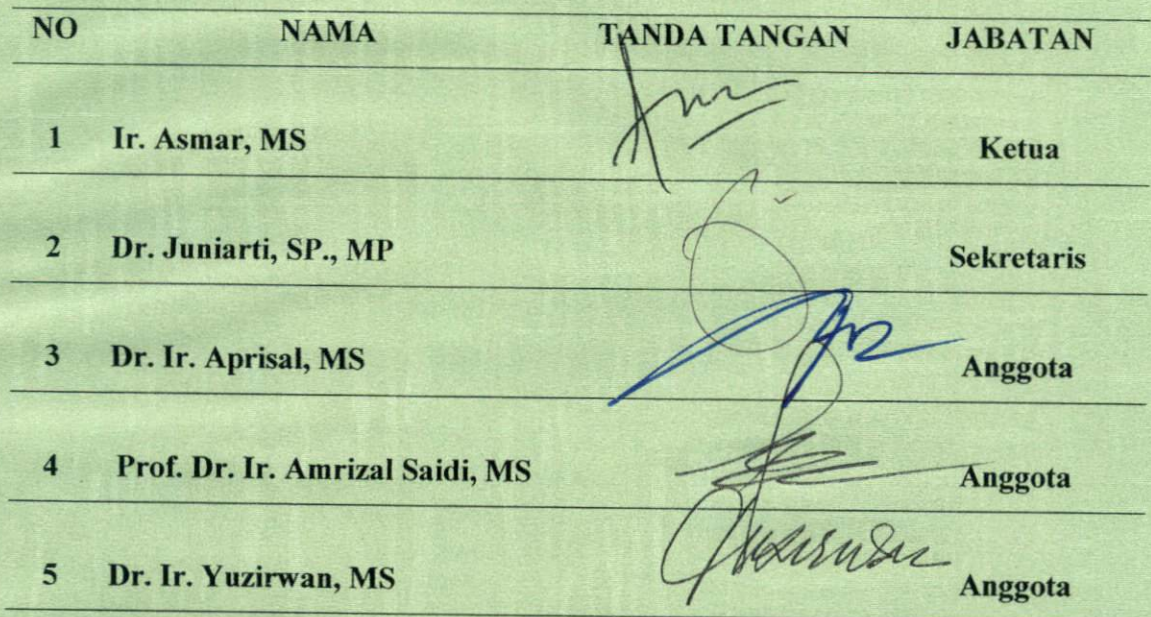 NO NAMA TANDA TANGAN JABATAN
1 Ir. Asmar, MS Ketua
2 Dr. Juniarti, SP., MP Sekretaris
3 Dr. Ir. Aprisal, MS Anggota
4 Prof. Dr. Ir. Amrizal Saidi, MS Anggota
5 Dr. Ir. Yuzirwan, MS Anggota